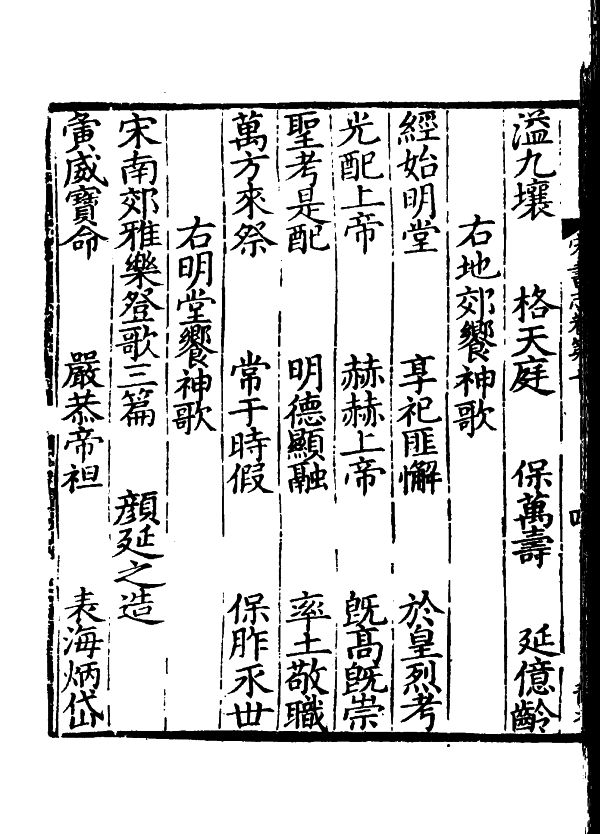 溢九壤　格天庭　保萬壽　延億齡
右地郊饗神歌
經始明堂　享祀匪懈　於皇烈考
光配上帝　赫赫上帝　旣高旣崇
聖考是配　明德顯融　率土敬職
萬方來祭　常于時假　保胙永世
右明堂饗神歌
宋南郊雅樂登歌三篇　顏延之造
夤威寶命　嚴恭帝祖　表海炳岱